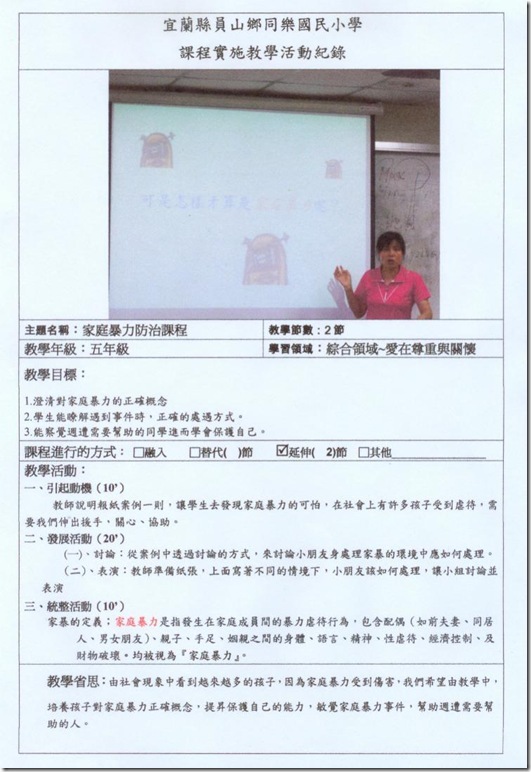 宜蘭縣員山鄉同樂國民小學
課程實施教學活動紀錄
可是怎樣才算是家庭暴力呢?
主題名稱:家庭暴力防治課程
教學節數:2 節
教學年級:五年級
學習領域:綜合領域~愛在尊重與關懷
教學目標:
1.澄清對家庭暴力的正確概念
2.學生能瞭解遇到事件時,正確的處遇方式。
3.能察覺週遭需要幫助的同學進而學會保護自己。
課程進行的方式:□融入 □替代( )節 ☑延伸( 2)節 □其他
教學活動:
一、引起動機(10’)
教師說明報紙案例一則,讓學生去發現家庭暴力的可怕,在社會上有許多孩子受到虐待,需
要我們伸出援手,關心、協助。
二、發展活動(20’)
(一)、討論:從案例中透過討論的方式,來討論小朋友身處理家暴的環境中應如何處理。
(二)、表演:教師準備紙張,上面寫著不同的情境下,小朋友該如何處理,讓小組討論並
表演
三、統整活動(10’)
家暴的定義;家庭暴力是指發生在家庭成員間的暴力虐待行為,包含配偶(如前夫妻、同居
人、男女朋友)、親子、手足、姻親之間的身體、語言、精神、性虐待、經濟控制、及
財物破壞。均被視為『家庭暴力』。
教學省思:由社會現象中看到越來越多的孩子,因為家庭暴力受到傷害,我們希望由教學中,
培養孩子對家庭暴力正確概念,提昇保護自己的能力,敏覺家庭暴力事件,幫助週遭需要幫
助的人。